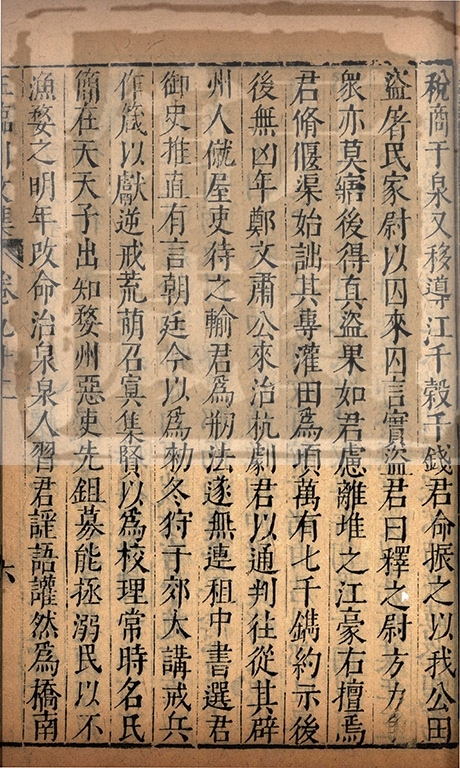 稅商于泉又移導江千穀千錢君命振之以我公田
盜屠民家尉以囚來囚言實盜君曰釋之尉方力
衆亦莫寤後得真盜果如君慮離堆之江豪右擅焉
君脩偃渠始詘其專灌田爲頃萬有七千鐫約示後
後無凶年鄭文肅公來治杭劇君以通判往從其辟
州人僦屋吏待之輸君爲刱法遂無連租中書選君
御史推直有言朝廷今以爲勑冬狩于郊大講戒兵
作箴以獻逆戒荒萌召寘集賢以爲校理常時名氏
簡在天天子出知婺州惡吏先鉏募能拯溺民以不
漁婺之明年改命治泉泉人習君謡語讙然爲橋南
王臨川文集 卷九十二 六